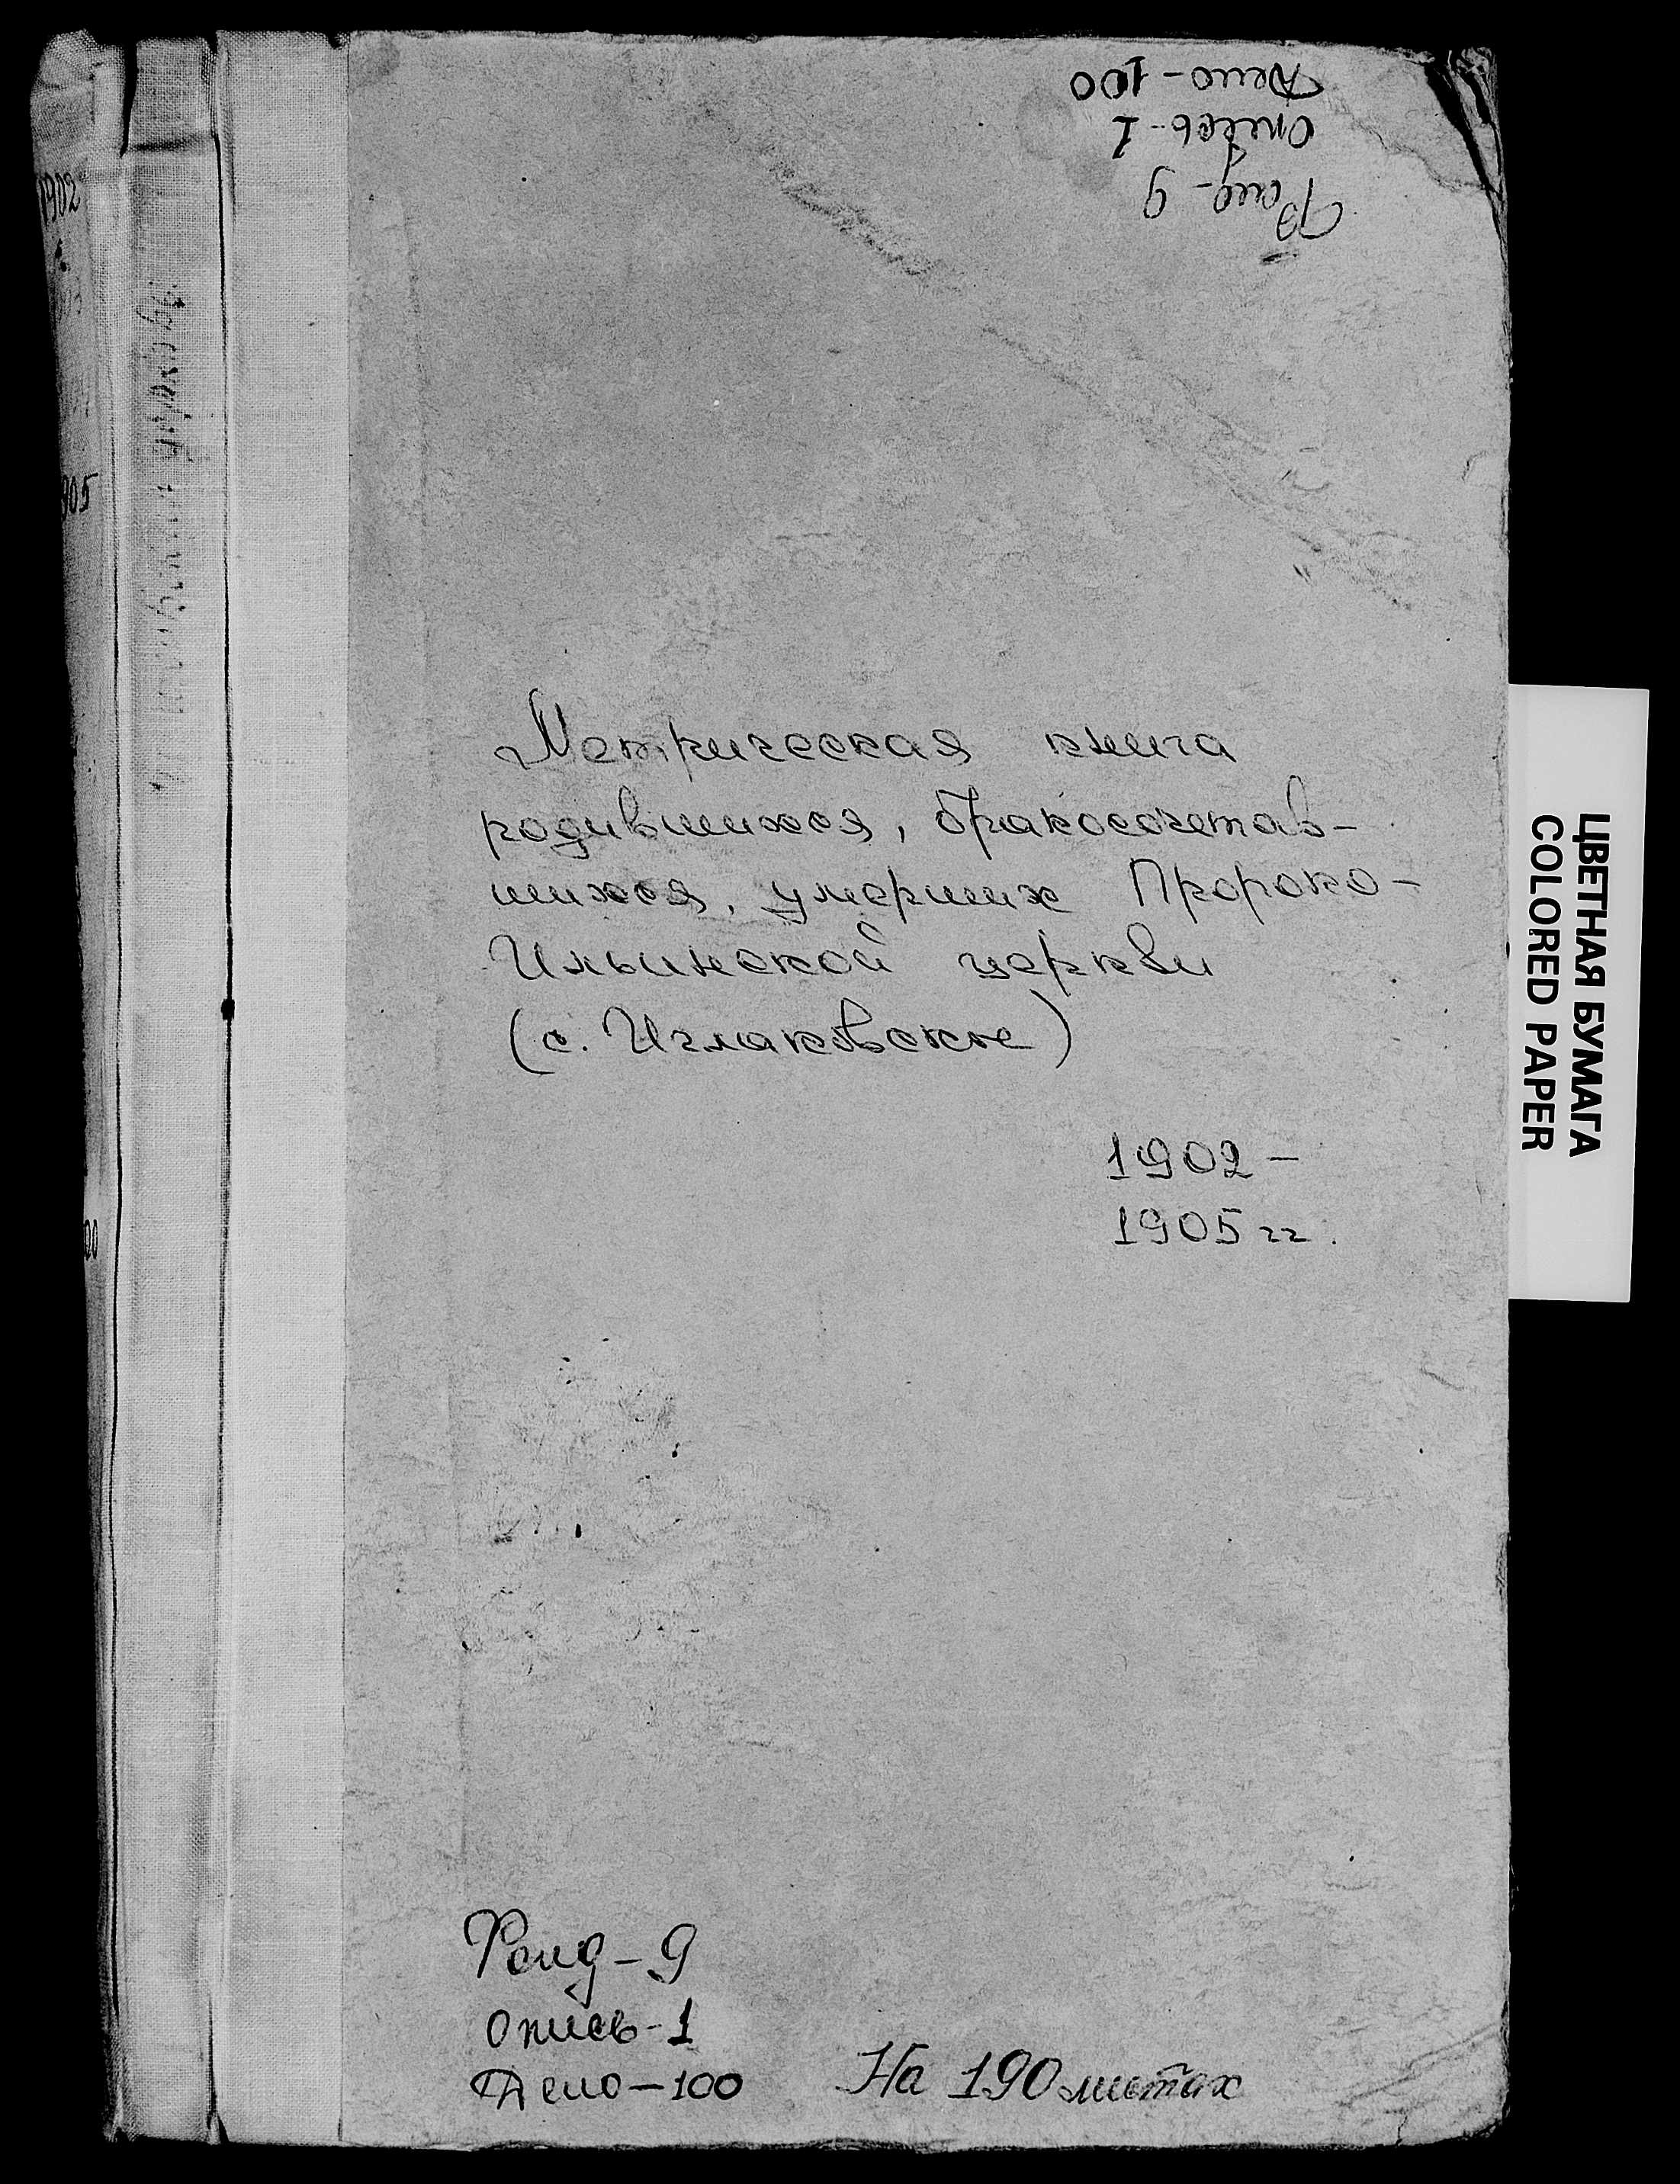 Дело - 100
опись - 1
Фонд - 9
1902
905
Метрическая книга
родившихся, бракосочетав-
шихся, умерших Пророко-
Ильинской церкви
(с. Иглаковское)
1902 -
1905 гг.
ЦВЕТНАЯ БУМАГА
COLORED PAPER
Фонд - 9
опись - 1
Дело - 100
На 190 листах